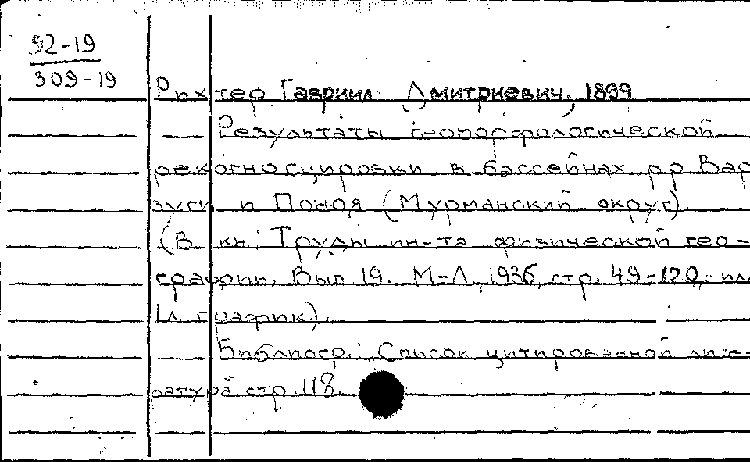 92-19
309-19
Рихтер Гавриил Дмитриевич, 1899
— Результаты геоморфологической
рекогносцировки в бассейнах рр Вар
зуги и Поноя (Мурманский округ)
(В кн: Труды ин-та физической гео-
графии. Вып 19. М-Л, 1936, стр. 49-120,
1 л график).
— Библиогр.: Список цитированной лите
ратуры стр 118.